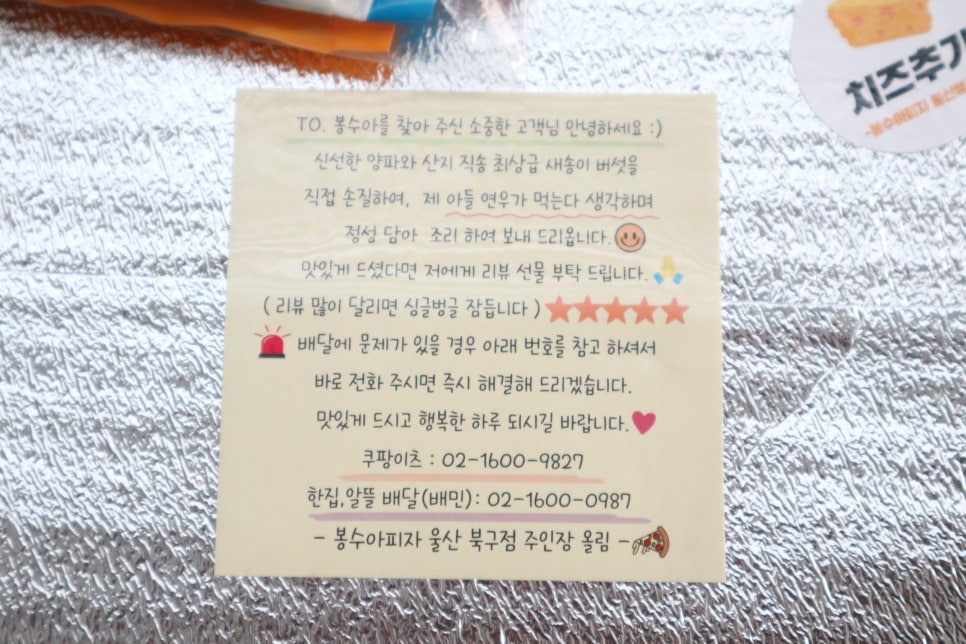 TO. 봉수아를 찾아 주신 소중한 고객님 안녕하세요 :)
신선한 양파와 산지 직송 최상급 새송이 버섯을
직접 손질하여, 제 아들 연우가 먹는다 생각하며
정성 담아 조리 하여 보내 드리옵니다.
맛있게 드셨다면 저에게 리뷰 선물 부탁 드립니다.
( 리뷰 많이 달리면 싱글벙글 잠듭니다 )
배달에 문제가 있을 경우 아래 번호를 참고 하셔서
바로 전화 주시면 즉시 해결해 드리겠습니다.
맛있게 드시고 행복한 하루 되시길 바랍니다.
쿠팡이츠 : 02-1600-9827
한집,알뜰 배달(배민): 02-1600-0987
- 봉수아피자 울산 북구점 주인장 올림 -
치즈추가
-봉수아피자